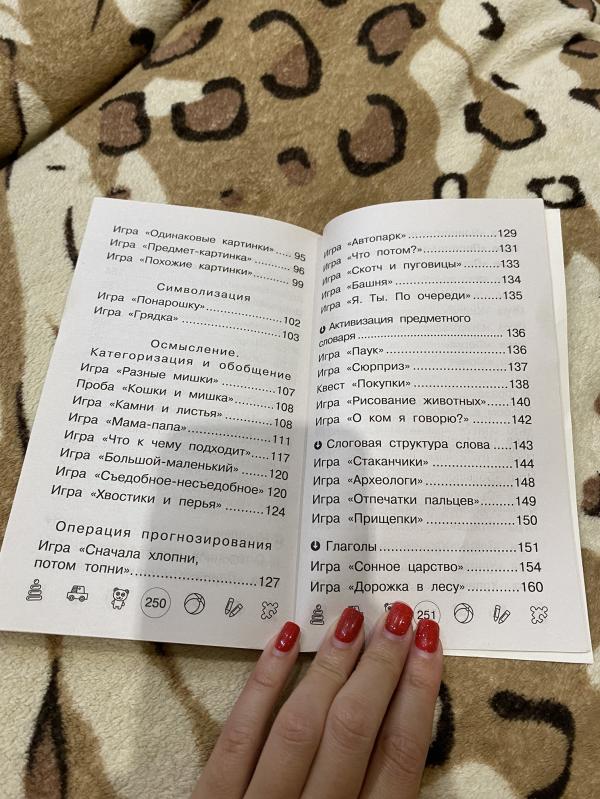 Игра «Одинаковые картинки»..... 95
Игра «Предмет-картинка»........... 96
Игра «Похожие картинки»............ 99
Символизация
Игра «Понарошку»..................... 102
Игра «Грядка»............................ 103
Осмысление.
Категоризация и обобщение
Игра «Разные мишки»............... 107
Проба «Кошки и мишка»........... 108
Игра «Камни и листья»............. 108
Игра «Мама-папа»..................... 111
Игра «Что к чему подходит»..... 117
Игра «Большой-маленький»...... 120
Игра «Съедобное-несъедобное» 120
Игра «Хвостики и перья».......... 124
Операция прогнозирования
Игра «Сначала хлопни,
потом топни»............................. 127
250
Игра «Автопарк»....................... 129
Игра «Что потом?».................... 131
Игра «Скотч и пуговицы».......... 133
Игра «Башня»........................... 134
Игра «Я. Ты. По очереди»......... 135
Активизация предметного
словаря.................................... 136
Игра «Паук».............................. 136
Игра «Сюрприз»........................ 137
Квест «Покупки»....................... 138
Игра «Рисование животных»..... 140
Игра «О ком я говорю?»........... 142
Слоговая структура слова..... 143
Игра «Стаканчики».................... 144
Игра «Археологи»..................... 148
Игра «Отпечатки пальцев»....... 149
Игра «Прищепки»..................... 150
Глаголы.................................... 151
Игра «Сонное царство»............ 154
Игра «Дорожка в лесу»............ 160
251